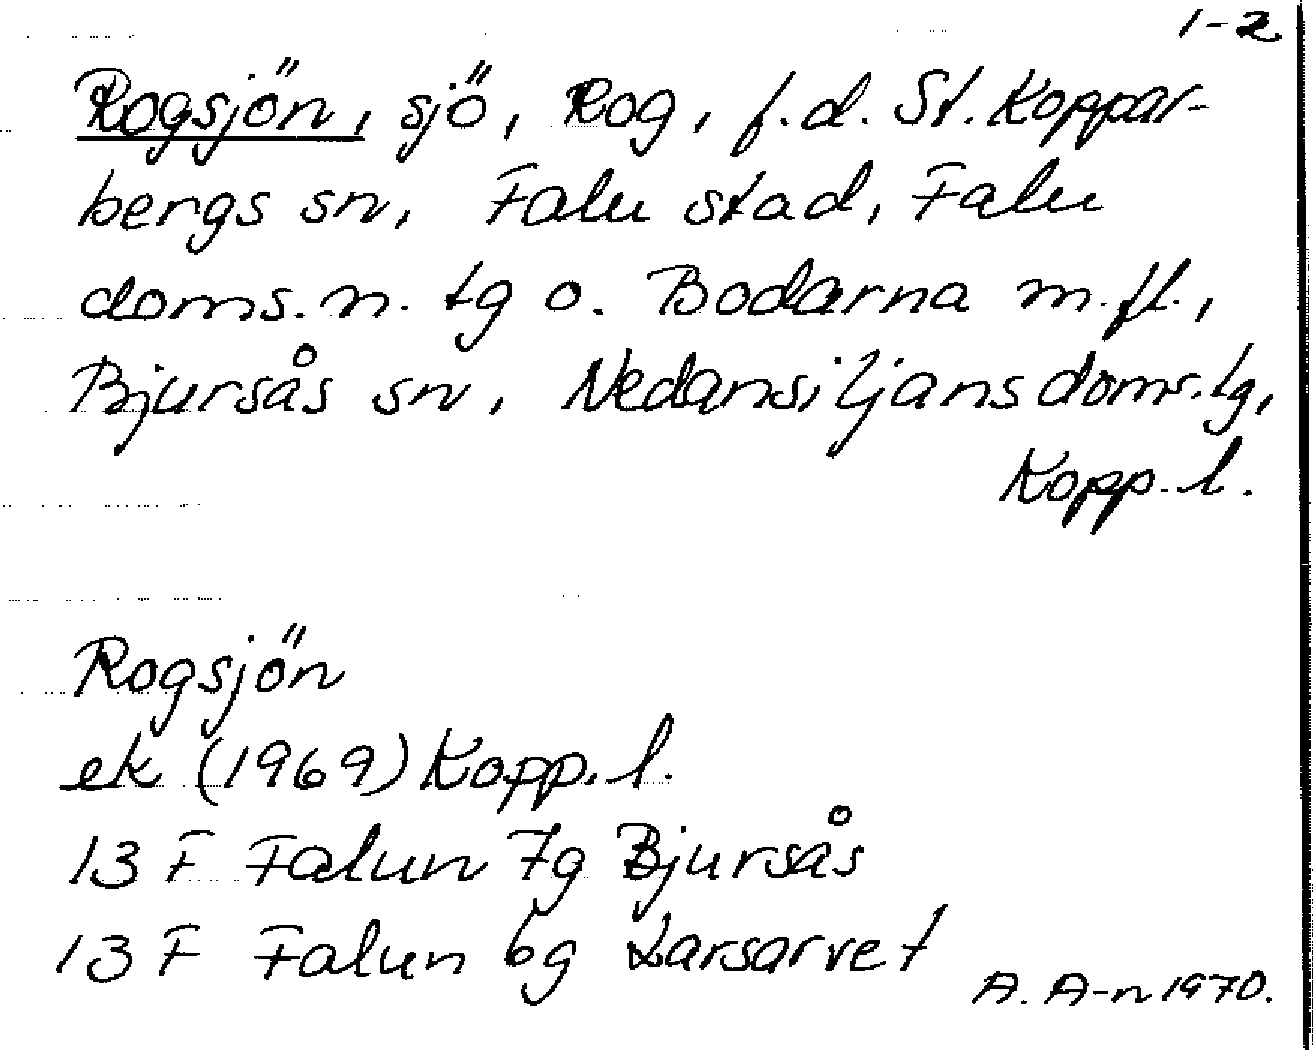 1-2
Rogsjön, sjö, Rog, f.d. St. Koppar-
bergs sn, Falu stad, Falu
doms.n. tg o. Bodarna m.fl.,
Bjursås sn, Nedansiljans doms.tg,
Kopp. l.
Rogsjön
ek (1969) Kopp. l.
13 F Falun 7g Bjursås
13 F Falun 6g Larsarvet
A. A-n 1970.